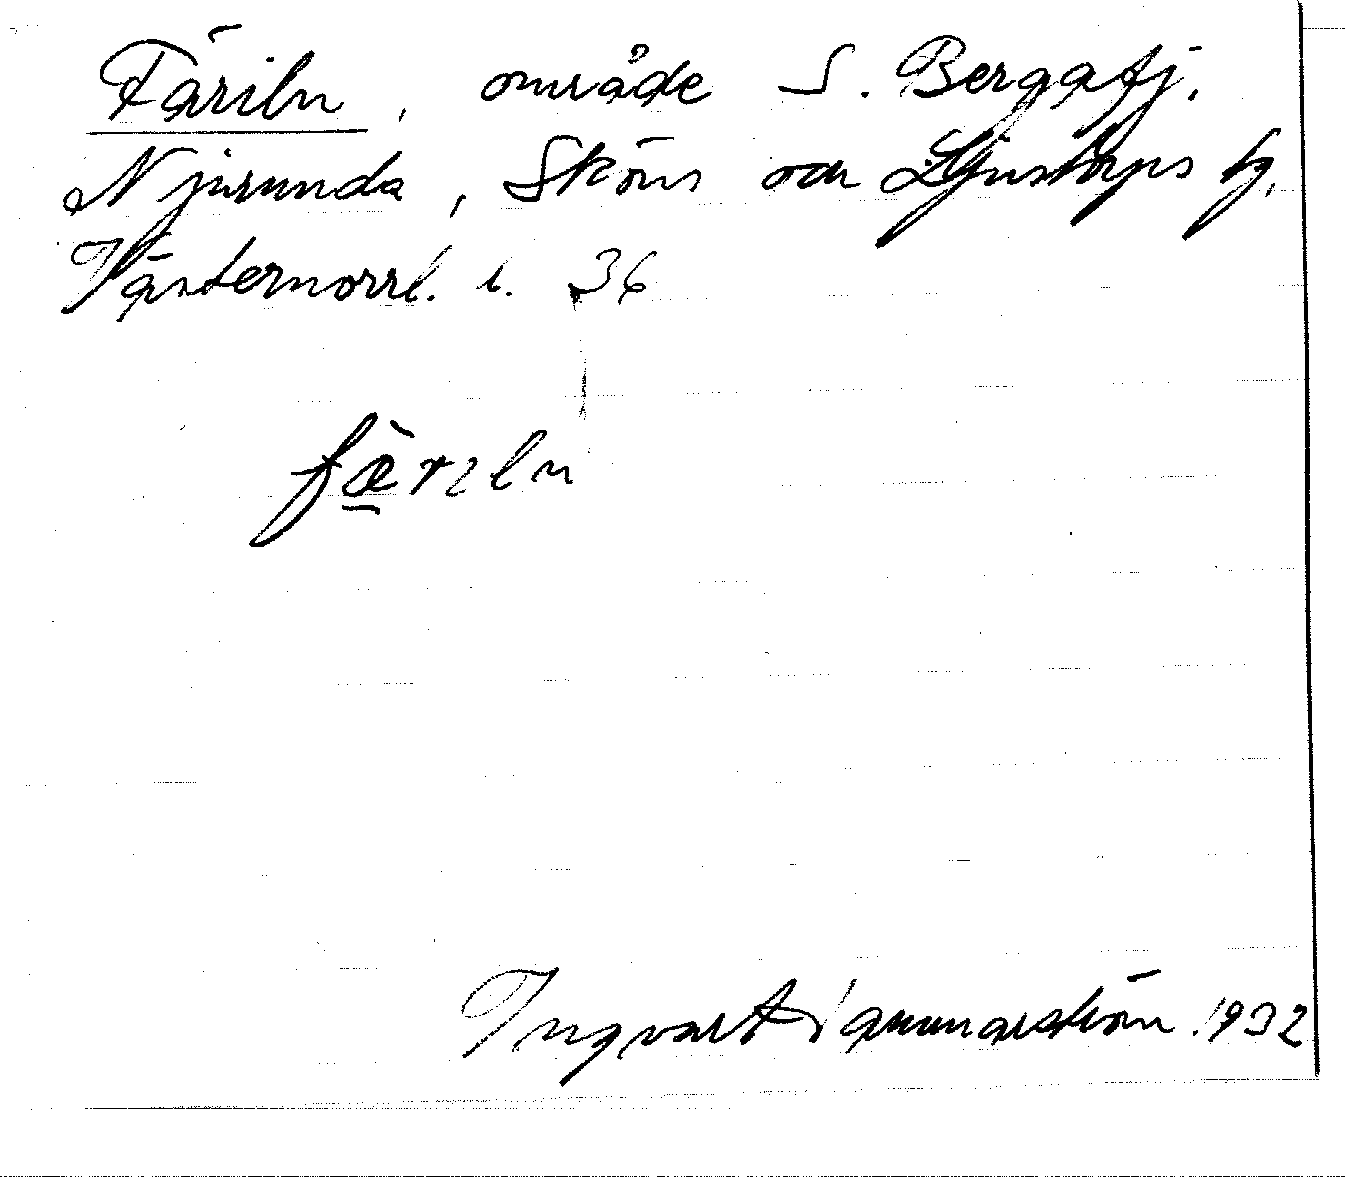 Färiln, område S. Bergafj.
Njurunda, Sköns och Ljustorps tg.
Västernorrl. l. 36
færıln
Ingvart 1932